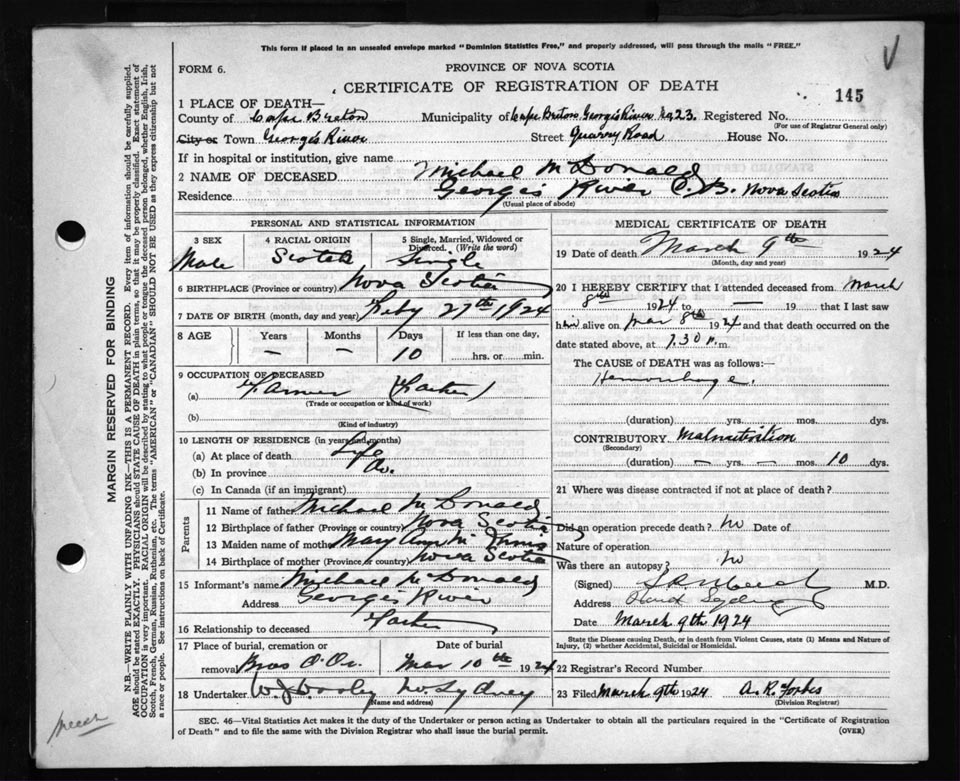 This form if placed in an unsealed envelope marked "Dominion Statistics Free," and properly addressed, will pass through the mails "FREE."
FORM 6.
PROVINCE OF NOVA SCOTIA
CERTIFICATE OF REGISTRATION OF DEATH
145
1 PLACE OF DEATH—
County of Cape Breton Municipality of Cape Breton Georges River No 23. Registered No.
(For use of Registrar General only)
City or Town Georges River Street Quarry Road House No.
If in hospital or institution, give name
2 NAME OF DECEASED Michael McDonald
Residence Georges River C. B. Nova Scotia
(Usual place of abode)
PERSONAL AND STATISTICAL INFORMATION
3 SEX 4 RACIAL ORIGIN 5 Single, Married, Widowed or Divorced. (Write the word)
Male Scotch Single
6 BIRTHPLACE (Province or country) Nova Scotia
7 DATE OF BIRTH (month, day and year) Feby 27th 1924
8 AGE Years Months Days If less than one day,
— — 10 hrs. or min.
9 OCCUPATION OF DECEASED
(a) Farmer (Father)
(Trade or occupation or kind of work)
(b)
(Kind of industry)
10 LENGTH OF RESIDENCE (in years and months)
(a) At place of death Life
(b) In province Do.
(c) In Canada (if an immigrant)
Parents
11 Name of father Michael McDonald
12 Birthplace of father (Province or country) Nova Scotia
13 Maiden name of mother Mary Ann
14 Birthplace of mother (Province or country) Nova Scotia
15 Informant's name Michael McDonald
Address Georges River
16 Relationship to deceased Father
17 Place of burial, cremation or removal Bras D'Or Date of burial Mar 10th 1924
18 Undertaker W. J. Dooley No Sydney
(Name and address)
MEDICAL CERTIFICATE OF DEATH
19 Date of death March 9th 1924
(Month, day and year)
20 I HEREBY CERTIFY that I attended deceased from March
8th 1924 to — 19 that I last saw
him alive on Mar 8th 1924 and that death occurred on the
date stated above, at 7.30 P.m.
The CAUSE of DEATH was as follows:
Hemorrhage.
(duration) yrs. mos. dys.
CONTRIBUTORY Malnutrition
(Secondary)
(duration) — yrs. — mos. 10 dys.
21 Where was disease contracted if not at place of death?
Did an operation precede death? No Date of
Nature of operation
Was there an autopsy? No
(Signed) M.D.
Address Sydney
Date March 9th 1924
State the Disease causing Death, or in death from Violent Causes, state (1) Means and Nature of Injury, (2) whether Accidental, Suicidal or Homicidal.
22 Registrar's Record Number
23 Filed March 9th 1924 A. R. Forbes
(Division Registrar)
SEC. 46—Vital Statistics Act makes it the duty of the Undertaker or person acting as Undertaker to obtain all the particulars required in the "Certificate of Registration
of Death" and to file the same with the Division Registrar who shall issue the burial permit. (OVER)
MARGIN RESERVED FOR BINDING
N.B.—WRITE PLAINLY WITH UNFADING INK—THIS IS A PERMANENT RECORD. Every item of information should be carefully supplied.
AGE should be stated EXACTLY. PHYSICIANS should STATE CAUSE OF DEATH in plain terms, so that it may be properly classified. Exact statement of
OCCUPATION is very important. RACIAL ORIGIN will be described by stating to what people or tongue the deceased person belonged, whether English, Irish,
Scotch, French, German, Russian, Ruthenian, etc. The terms "AMERICAN" or "CANADIAN" SHOULD NOT BE USED as they express citizenship but not
a race or people. See instructions on back of Certificate.